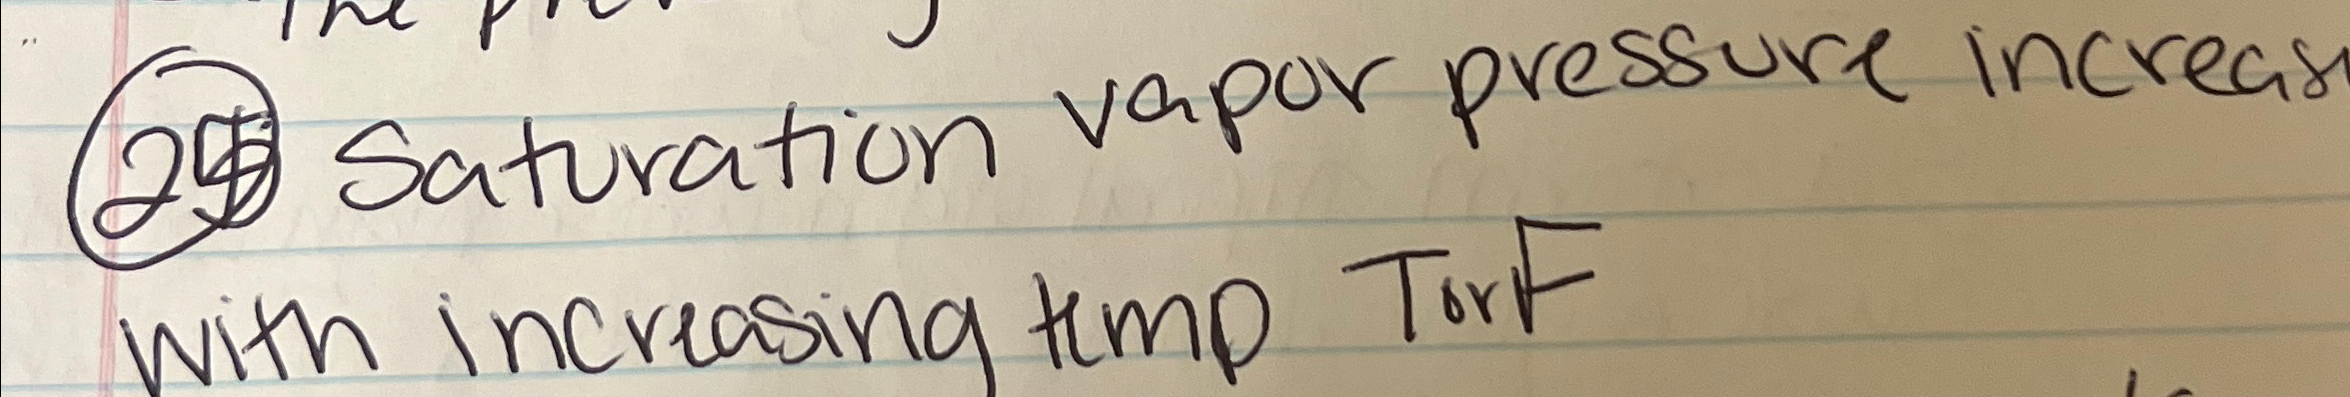 The
25 Saturation vapor pressure increas
with increasing temp T or F